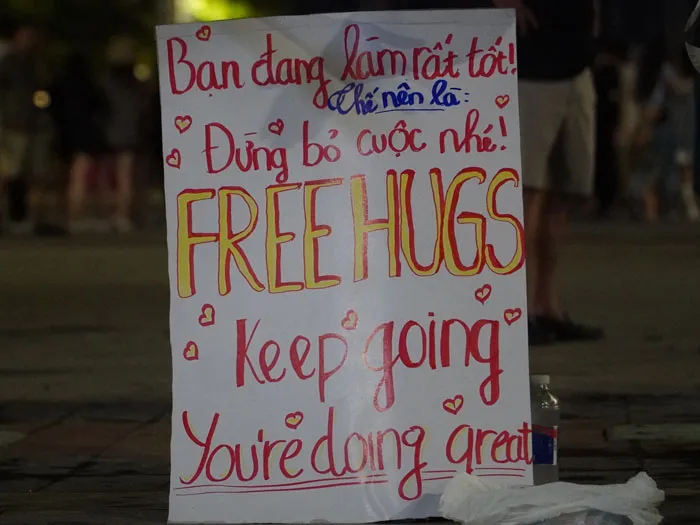 Bạn đang làm rất tốt!
Chế nên là:
Đừng bỏ cuộc nhé!
FREE HUGS
Keep going
You're doing great